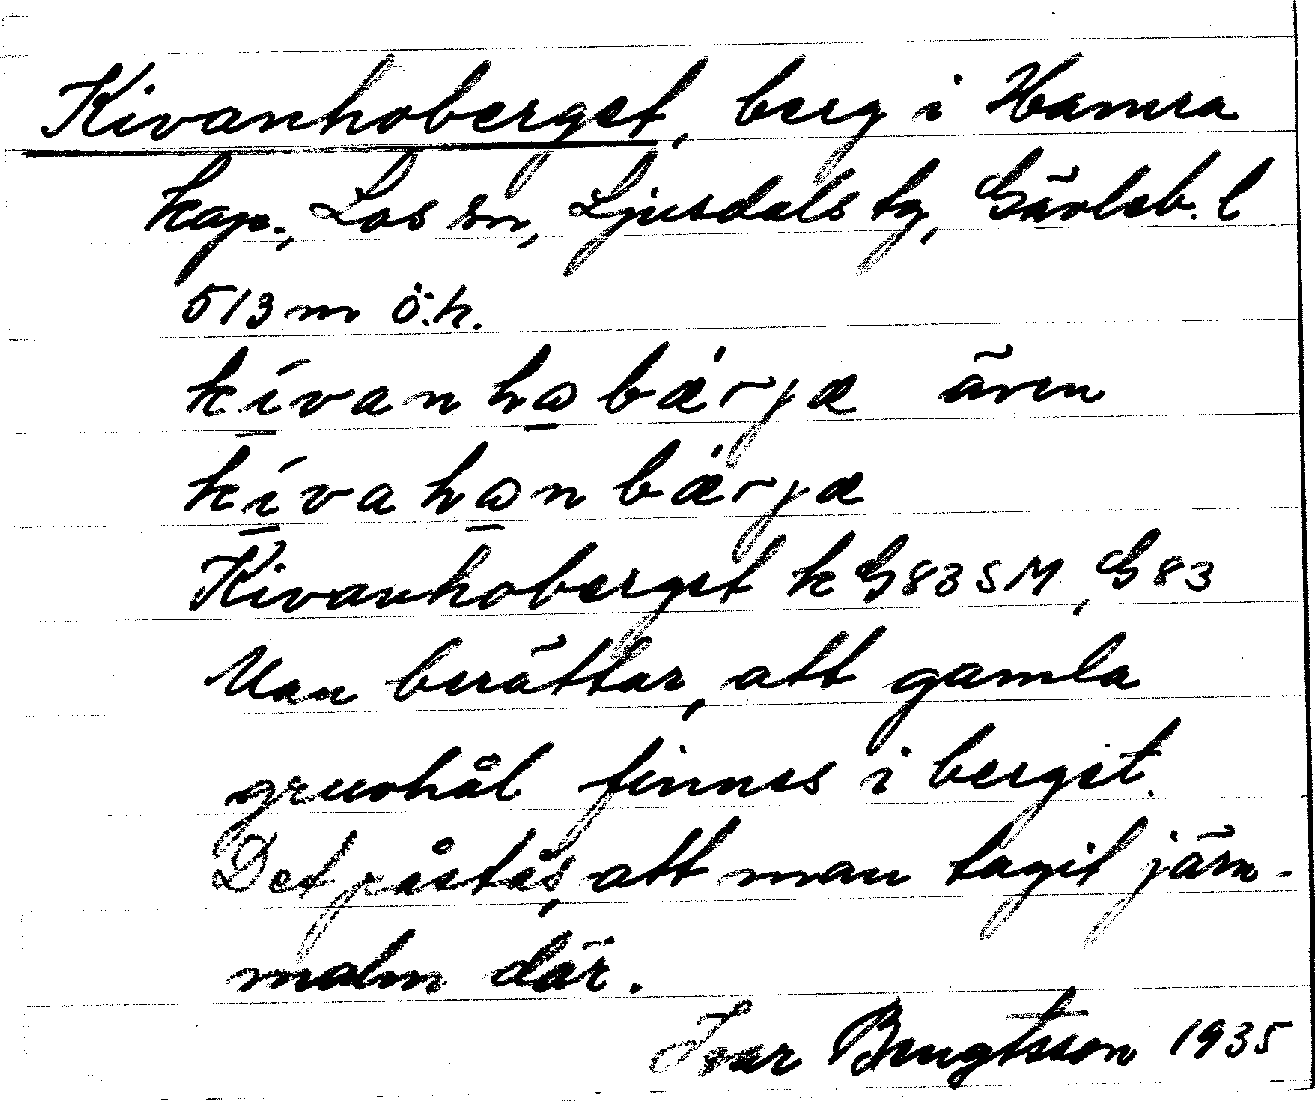 Kivanhoberget, berg i Hamra
kap., Los sn, Ljusdals tg, Gävleb. l
513 m ö.h.
kívanhωbǽrjæ även
kívahωnbǽrjæ
Kivanhoberget k G83SM, G83
Man berättar, att gamla
gruvhål finnes i berget.
Det påstås, att man tagit järn-
malm där.
Ivar Bengtsson 1935